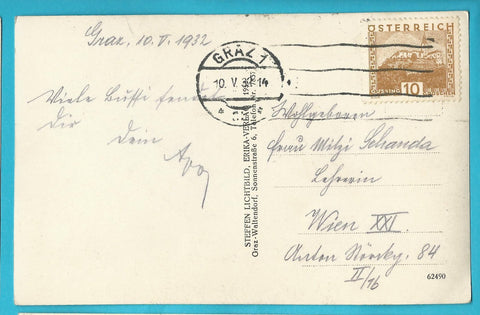 Graz, 10. V. 1932
Viele Bussi sendet
Dir
Dein
GRAZ 1
10. V. 32 14
ÖSTERREICH
GÜSSING
10
STEFFEN LICHTBILD, ERIKA-VERLAG
Graz-Waltendorf, Sonnenstraße 6, Telefon
Wohlgeboren
Frau Mitzi Schanda
Lehrerin
Wien XXI.
Anton Störckg. 84
II/16
62490